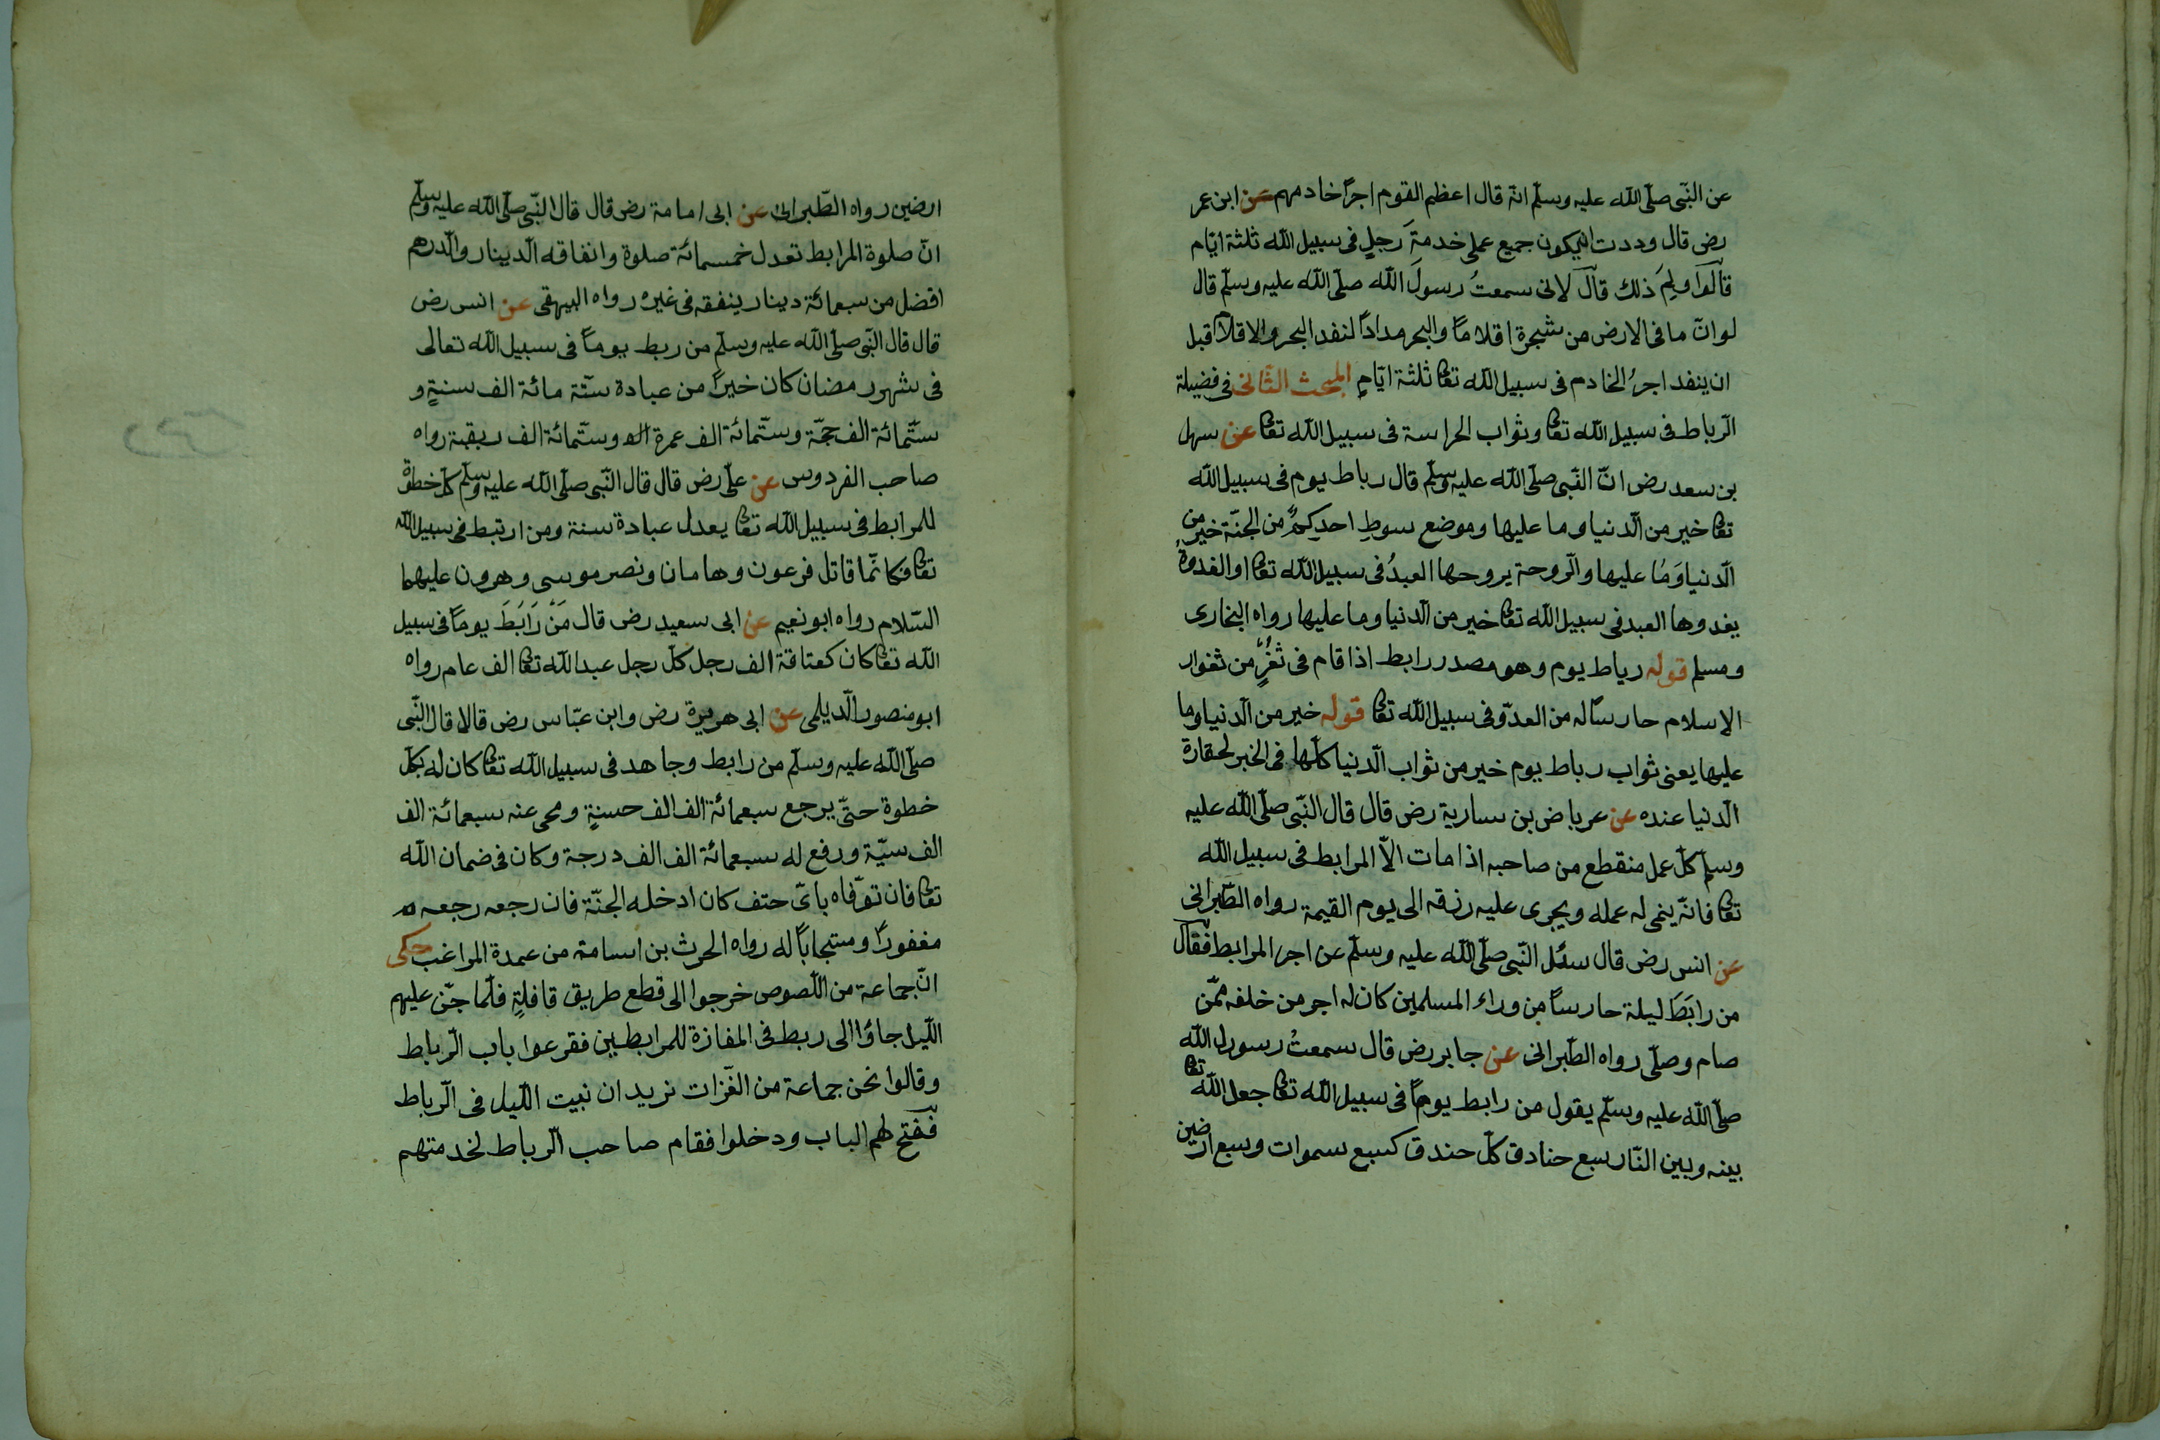 عن النّبى صلّى الله عليه وسلّم انّه قال اعظم القوم اجرًا خادمهم عن ابن عمر
رض قال وددت ان يكون جميع عملى خدمةَ رجلٍ فى سبيل الله ثلثة ايّام
قالوا ولِمَ ذلك قال لانى سمعتُ رسولَ الله صلّى الله عليه وسلّم قال
لو انّ ما فى الارض من شجرة اقلامًا والبحر مدادًا لنفد البحر والاقلام قبل
ان ينفد اجرُ الخادم فى سبيل الله تعا ثلثة ايّامٍ المبحث الثّانى فى فضيلة
الرّباط فى سبيل الله تعا وثواب الحراسة فى سبيل الله تعا عن سهل
بن سعد رض انّ النّبى صلّى الله عليه وسلّم قال رباط يوم فى سبيل الله
تعا خير من الّدنيا وما عليها وموضع سوطِ احدِكمْ من الجنّة خير من
الّدنيا وَمَا عليها والرّوحة يروحها العبدُ فى سبيل الله تعا او الغدوةُ
يغدوها العبد فى سبيل الله تعا خير من الّدنيا وما عليها رواه البخارى
ومسلم قوله رباط يوم وهو مصدر رابط اذا قام فى ثغْرٍ من ثغوار
الاسلام حارسًا له من العدوّ فى سبيل الله تعا قوله خير من الّدنيا وما
عليها يعنى ثواب رباط يوم خير من ثواب الّدنيا كلّها فى الخبر لحقارة
الّدنيا عنده عن عرباض بن سارية رض قال قال النّبى صلّى الله عليه
وسلّم كلّ عمل منقطع من صاحبه اذا مات الّا المرابط فى سبيل الله
تعا فانّه ينمى له عمله ويجرى عليه رزقه الى يوم القيمة رواه الطّبرانى
عن انس رض قال سئل النّبى صلّى الله عليه وسلّم عن اجر المرابط فقال
من رابَطَ ليلة حارسًا من وراء المسلمين كان له اجر من خلفه ممّن
صام وصلّى رواه الطّبرانى عن جابر رض قال سمعتُ رسول الله
صلّى الله عليه وسلّم يقول من رابط يومًا فى سبيل الله تعا جعل الله تعا
بينه وبين النّار سبع خنادق كلّ خندق كسبع سموات وسبع ارضين
ارضين رواه الطّبرانى عن ابى امامة رض قال قال النّبى صلّى الله عليه وسلّم
انّ صلوة المرابط تعدل خمسمائة صلوة وانفاقه الّدينار والّدرهم
افضل من سبعمائة دينار ينفقه فى غيره رواه البيهقى عن انس رض
قال قال النّبى صلّى الله عليه وسلّم من ربط يومًا فى سبيل الله تعالى
فى شهور مضان كان خيرًا من عبادة ستّة مائة الف سنةٍ و
ستّمائة الف حجّة وستّمائة الف عمرة وستّمائة الف رقبة رواه
صاحب الفردوس عن علىّ رض قال قال النّبى صلّى الله عليه وسلّم كلّ خطوة
للمرابط فى سبيل الله تعا يعدل عبادة سنة ومن ارتبط فى سبيل الله
تعا فكانّما قاتل فرعون وهامان ونصر موسى وهرون عليهما
السّلام رواه ابو نعيم عن ابى سعيد رض قال مَنْ رَابَطَ يومًا فى سبيل
الله تعا كان كعتاقة الف رجل كلّ رجل عبد الله تعا الف عام رواه
ابو منصور الّديلمى عن ابى هريرة رض وابن عبّاس رض قالا قال النّبى
صلّى الله عليه وسلّم من رابط وجاهد فى سبيل الله تعا كان له بكلّ
خطوة حتّى يرجع سبعمائة الف الف حسنةٍ ومحى عنه سبعمائة الف
الف سيّة ورفع له سبعمائة الف الف درجة وكان فى ضمان الله
تعا فان توفّاه باىّ حتف كان ادخله الجنّة فان رجعه رجعه
مغفورًا ومستجابًا له رواه الحرث بن اسامة من عمدة المراغب حكى
انّ جماعة من اللّصوص خرجوا الى قطع طريق قافلةٍ فلمّا جنّ عليهم
اللّيل جاؤا الى ربط فى المفازة للمرابطين فقرعوا باب الرّباط
وقالوا نحن جماعة من الغزات نريد ان نبيت اللّيل فى الرّباط
ففتح لهم الباب ودخلوا فقام صاحب الرّباط لخدمتهم